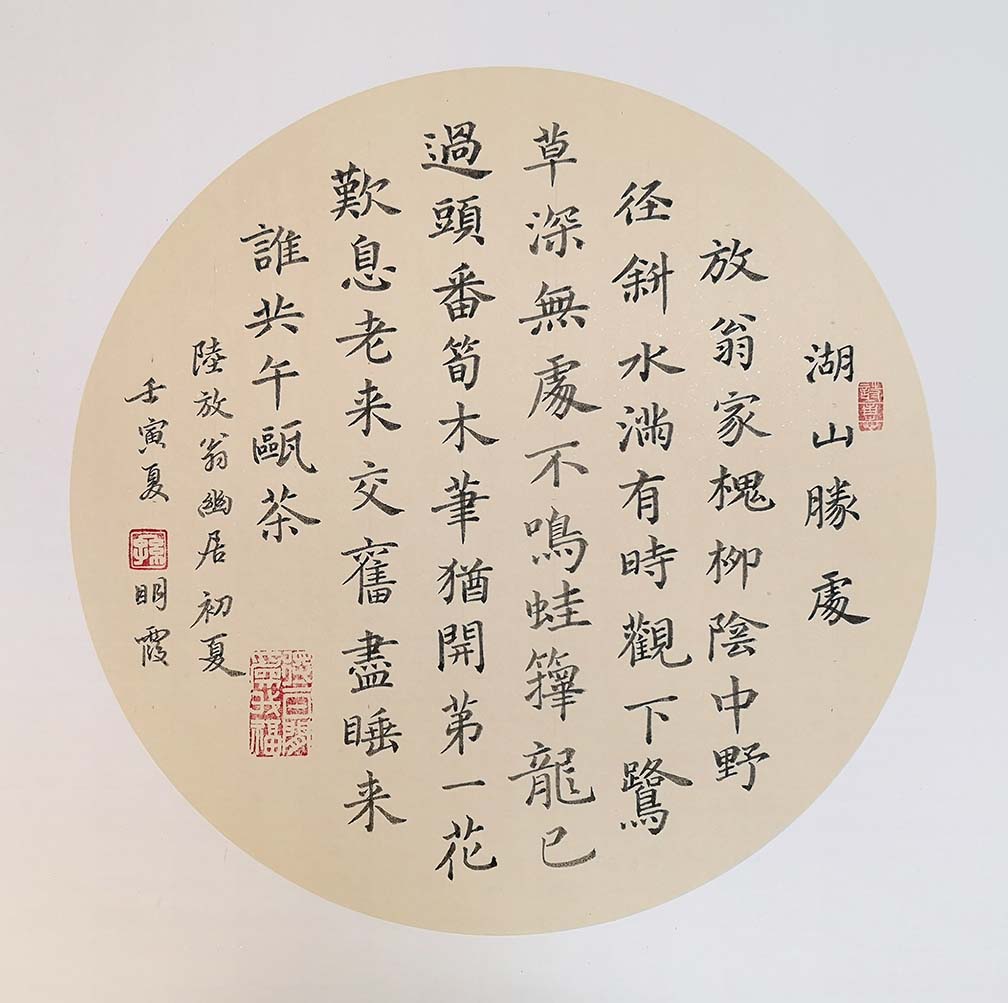 湖山勝處
放翁家槐柳陰中野
径斜水滿有時觀下鷺
草深無處不鳴蛙籜龍已
過頭番筍木筆猶開第一花
歎息老来交舊盡睡来
誰共午甌茶
陸放翁幽居初夏
壬寅夏 孫 明霞